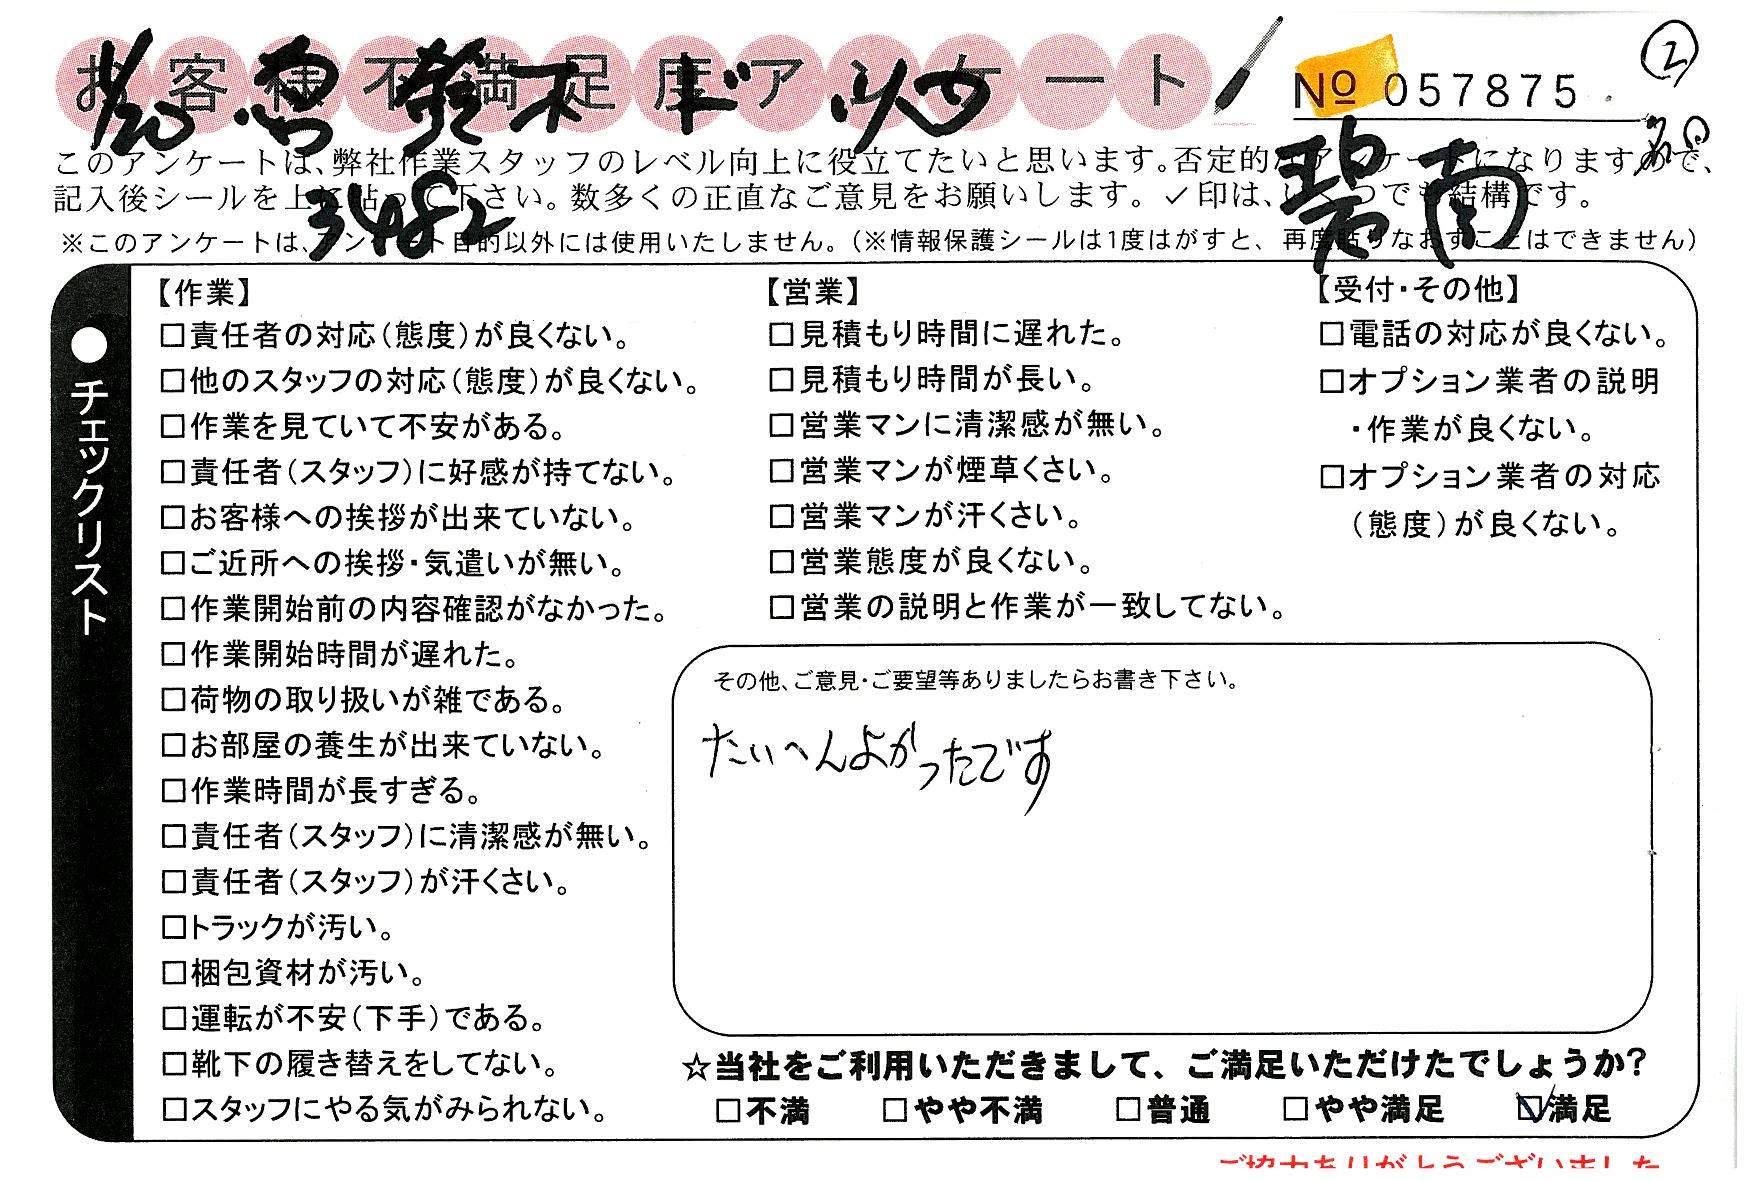 お客様不満足度アンケート
№ 057875
2
碧南
3482
このアンケートは、弊社作業スタッフのレベル向上に役立てたいと思います。否定的なアンケートになりますので、
記入後シールを上に貼って下さい。数多くの正直なご意見をお願いします。✓印は、いくつでも結構です。
※このアンケートは、アンケート目的以外には使用いたしません。（※情報保護シールは1度はがすと、再度貼りなおすことはできません）
●チェックリスト
【作業】
□責任者の対応（態度）が良くない。
□他のスタッフの対応（態度）が良くない。
□作業を見ていて不安がある。
□責任者（スタッフ）に好感が持てない。
□お客様への挨拶が出来ていない。
□ご近所への挨拶・気遣いが無い。
□作業開始前の内容確認がなかった。
□作業開始時間が遅れた。
□荷物の取り扱いが雑である。
□お部屋の養生が出来ていない。
□作業時間が長すぎる。
□責任者（スタッフ）に清潔感が無い。
□責任者（スタッフ）が汗くさい。
□トラックが汚い。
□梱包資材が汚い。
□運転が不安（下手）である。
□靴下の履き替えをしてない。
□スタッフにやる気がみられない。
【営業】
□見積もり時間に遅れた。
□見積もり時間が長い。
□営業マンに清潔感が無い。
□営業マンが煙草くさい。
□営業マンが汗くさい。
□営業態度が良くない。
□営業の説明と作業が一致してない。
【受付・その他】
□電話の対応が良くない。
□オプション業者の説明
・作業が良くない。
□オプション業者の対応
（態度）が良くない。
その他、ご意見・ご要望等ありましたらお書き下さい。
たいへんよかったです
☆当社をご利用いただきまして、ご満足いただけたでしょうか?
□不満 □やや不満 □普通 □やや満足 ☑満足
ご協力ありがとうございました